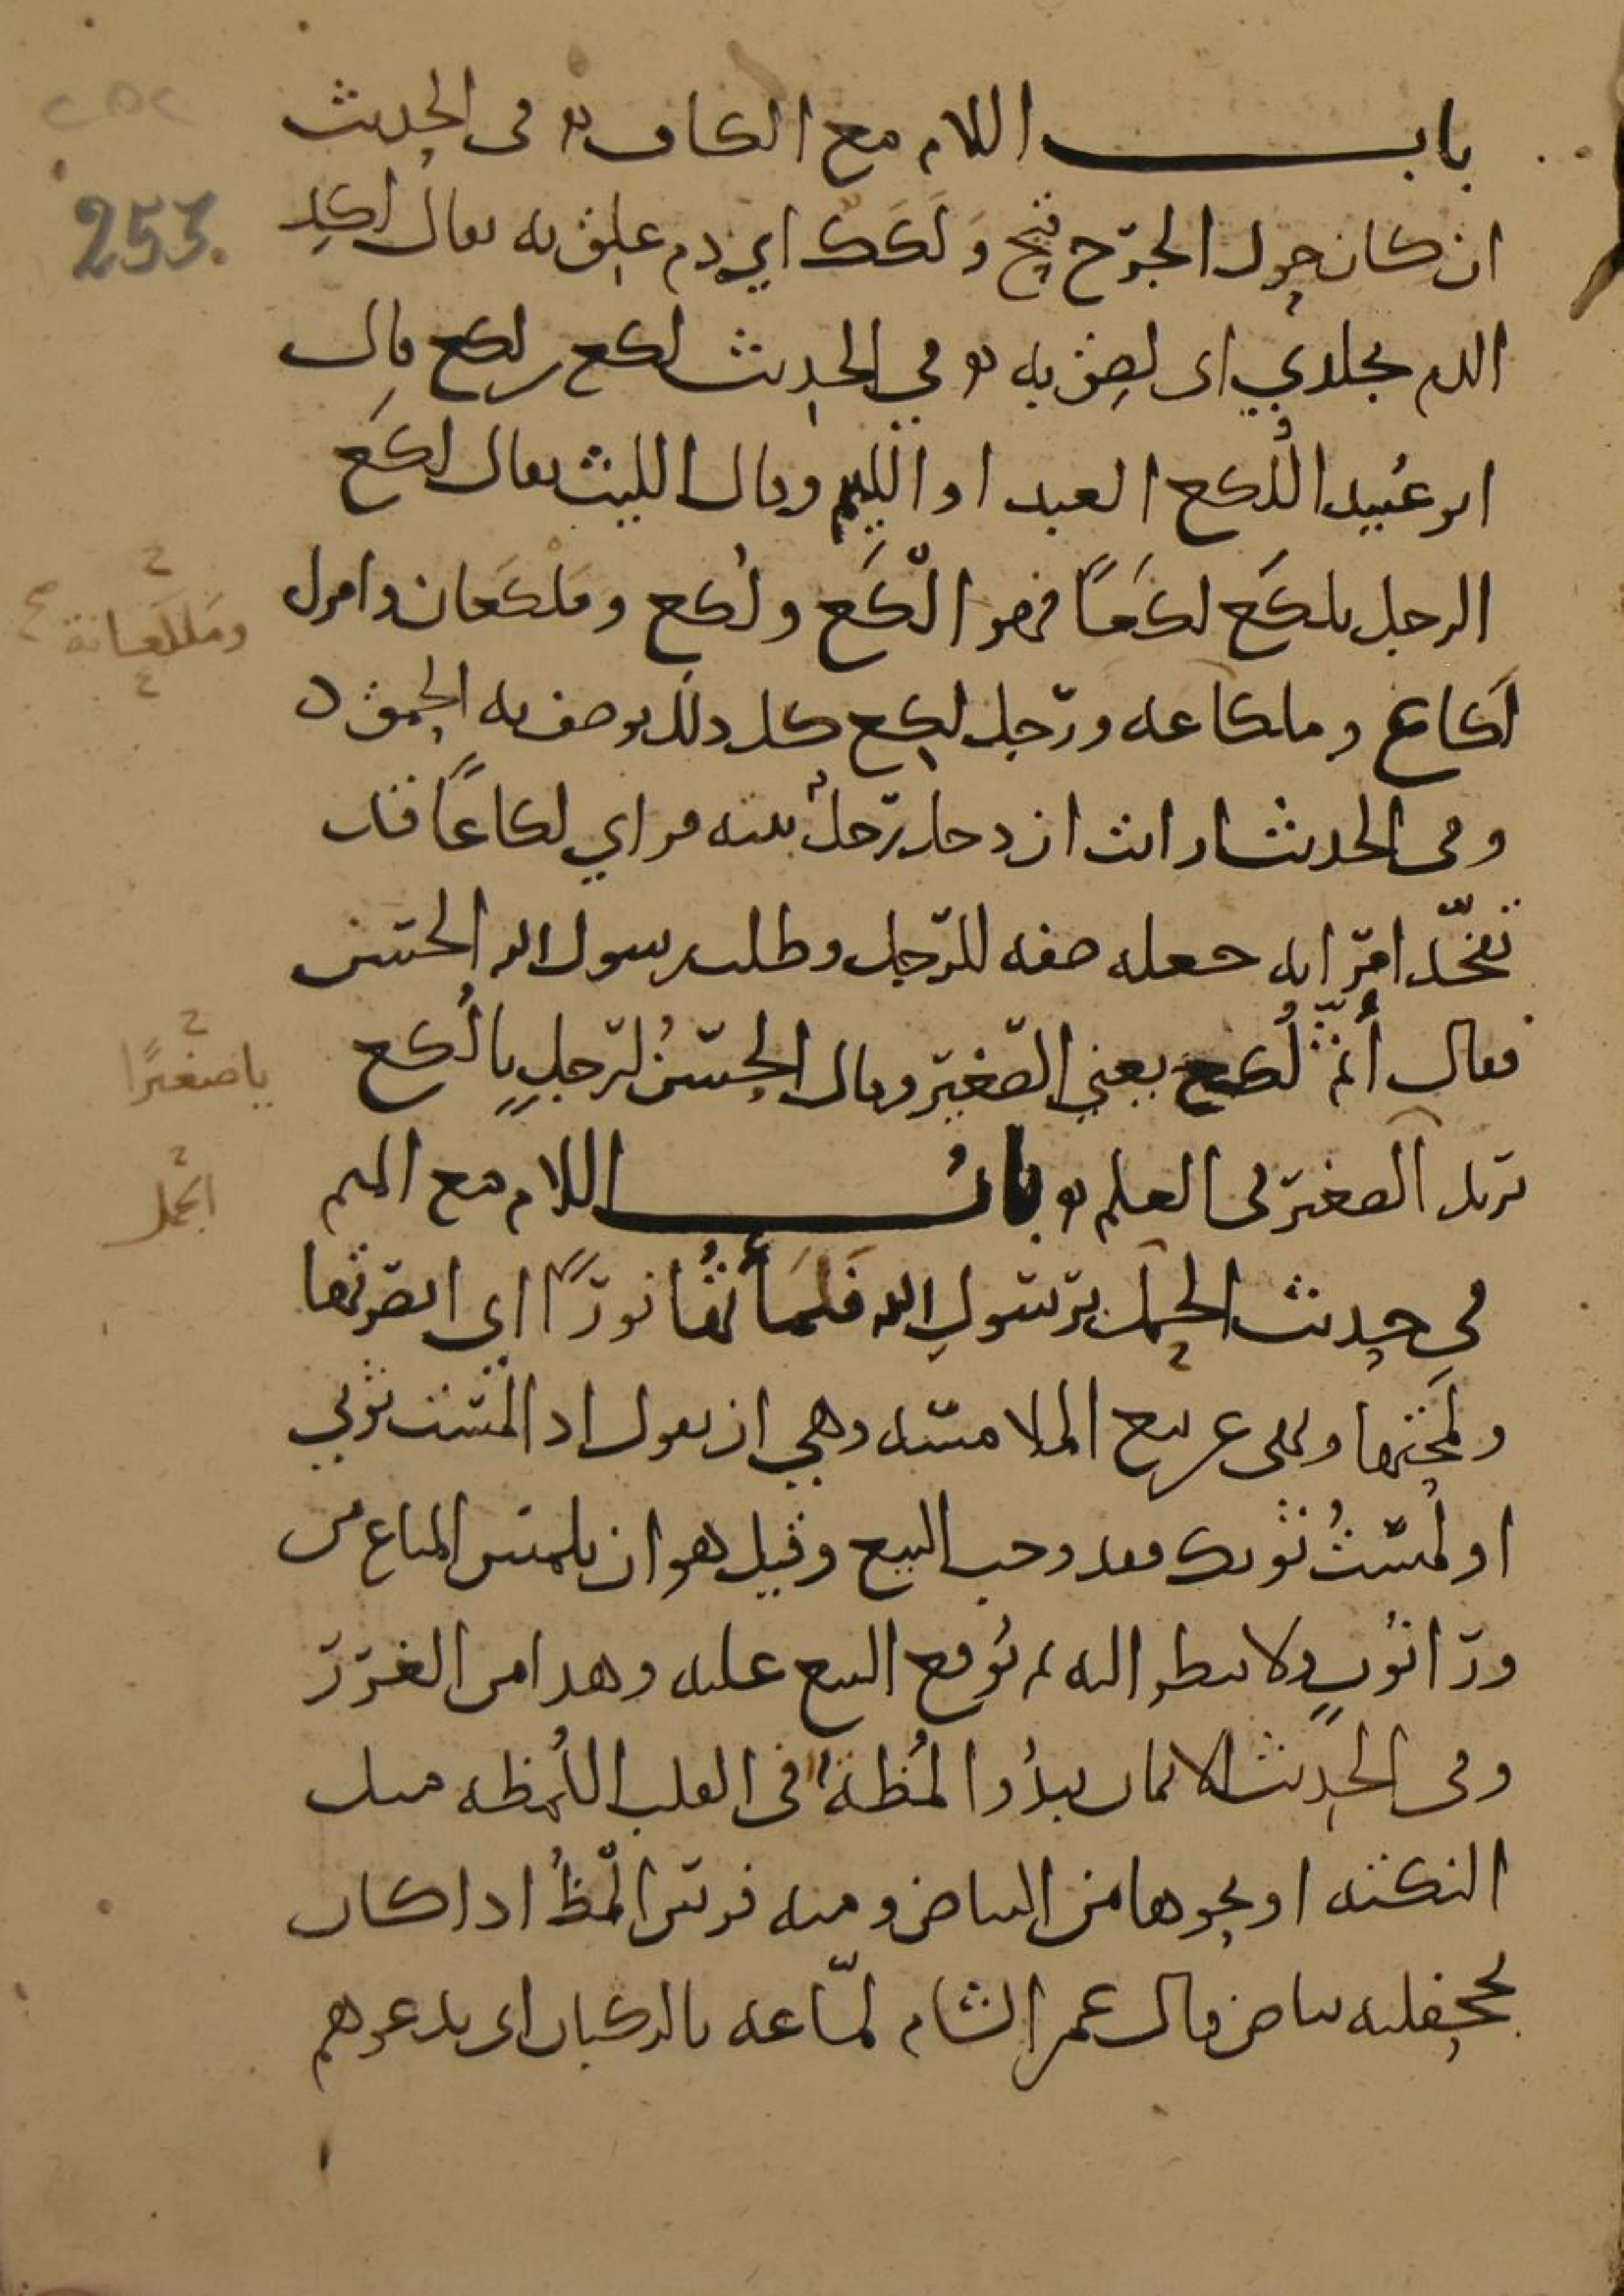 باب اللام مع الكاف في الحديث
ان كان حول الجرح قيح ولكد اي دم علق به يقال لكد
الدم بجلدي اى لصق به في الحديث لكع بن لكع قال
ابو عبيد اللكع العبد او اللئيم وقال الليث يقال لكع
الرجل يلكع لكعًا فهو الكع ولكع وملكعان وامراة
لكاع وملكاعه ورجل لكيع كل ذلك يوصف به الحمق
وفي الحديث ارايت ان دخل رجل بيته فراي لكاعًا قد
تفخذ امراته جعله صفه للرجل وطلب رسول الله الحسن
فقال أثم لكع يعني الصغير وقال الحسن لرجل يا لكع
يريد الصغير في العلم باب اللام مع الميم
في حديث الحمل برسول الله فلمأتها نورًا اي ابصرتها
ولمحتها ونهى عن بيع الملامسه وهي ان يقول اذا لمست ثوبي
او لمستُ ثوبك فقد وجب البيع وقيل هو ان يلمس المتاع من
ورا ثوبٍ ولا ينظر اليه ثم يوقع البيع عليه وهذا من الغرر
وفي الحديث الايمان يبدُوا لُمظةً في القلب اللُمظه مثل
النكته او نحوها من البياض ومنه فرس المظُ اذا كان
بجحفلته بياض قال عمر الشام لمّاعه بالركبان اى يدعوهم
ومَلكَعانة صح
يا صغيرًا
الحمل
253.